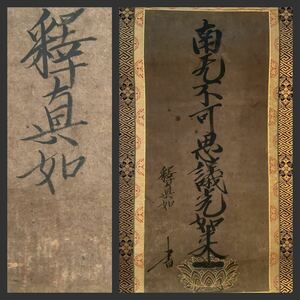 釋真如
南无不可思議光如來
釋真如
書